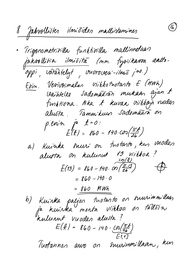 8 Jaksollisten ilmiöiden mallintaminen
• Trigonometrisilla funktioilla mallinnetaan
jaksollisia ilmiöitä (mm. fysiikassa
oppi, värähtelyt, vuorovesi-ilmiö jne.)
Esim. Vesivoimalan viikkotuotanto E (MWh)
vaihtelee sademäärän mukaan ajan t
funktiona. Aika t kuvaa viikkoja vuoden
alusta. Tammikuun sademäärä on
pienin ja t=0.
E(t) = 860 - 140 cos(
a) Kuinka suuri on tuotanto, kun vuoden
alusta on kulunut 13 viikkoa?
E(13) = 860 - 140 cos(
= 860 - 140·0
= 860 MWh
b) Kuinka paljon tuotanto on suurimmillaan
ja kuinka monta viikkoa on tällöin
kulunut vuoden alusta?
E(t) = 860 - 140 cos(
Tuotannon arvo on suurimmillaan, kun